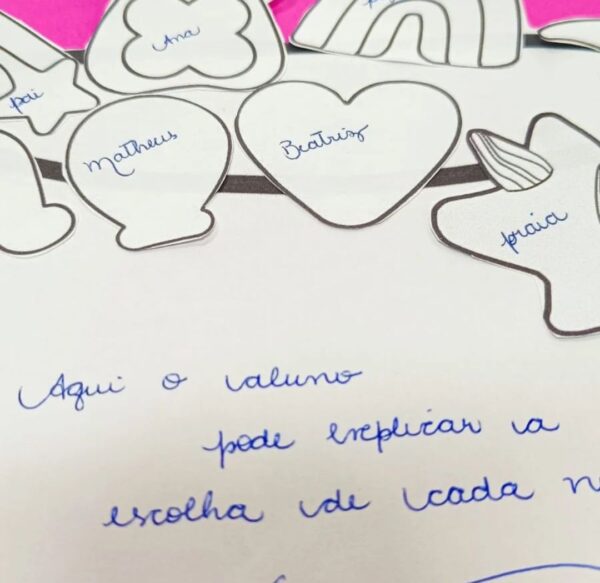 Ana
pai
Matheus
Beatriz
praia
Aqui o aluno
pode explicar a
escolha de cada